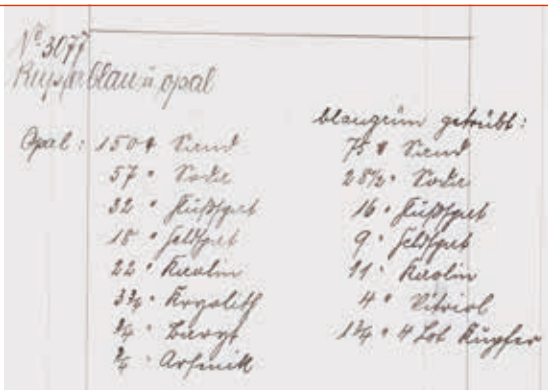 No 3077
Kupferblau u. opal
Opal: 150 ℔ Sand
57 " Soda
32 " Flußspat
18 " Feldspat
22 " Kaolin
3¾ " Kryolith
¾ " Baryt
¾ " Arsenik
blaugrün getrübt:
75 ℔ Sand
28½ " Soda
16 " Flußspat
9 " Feldspat
11 " Kaolin
4 " Vitriol
1¾ " 4 Lot Kupfer